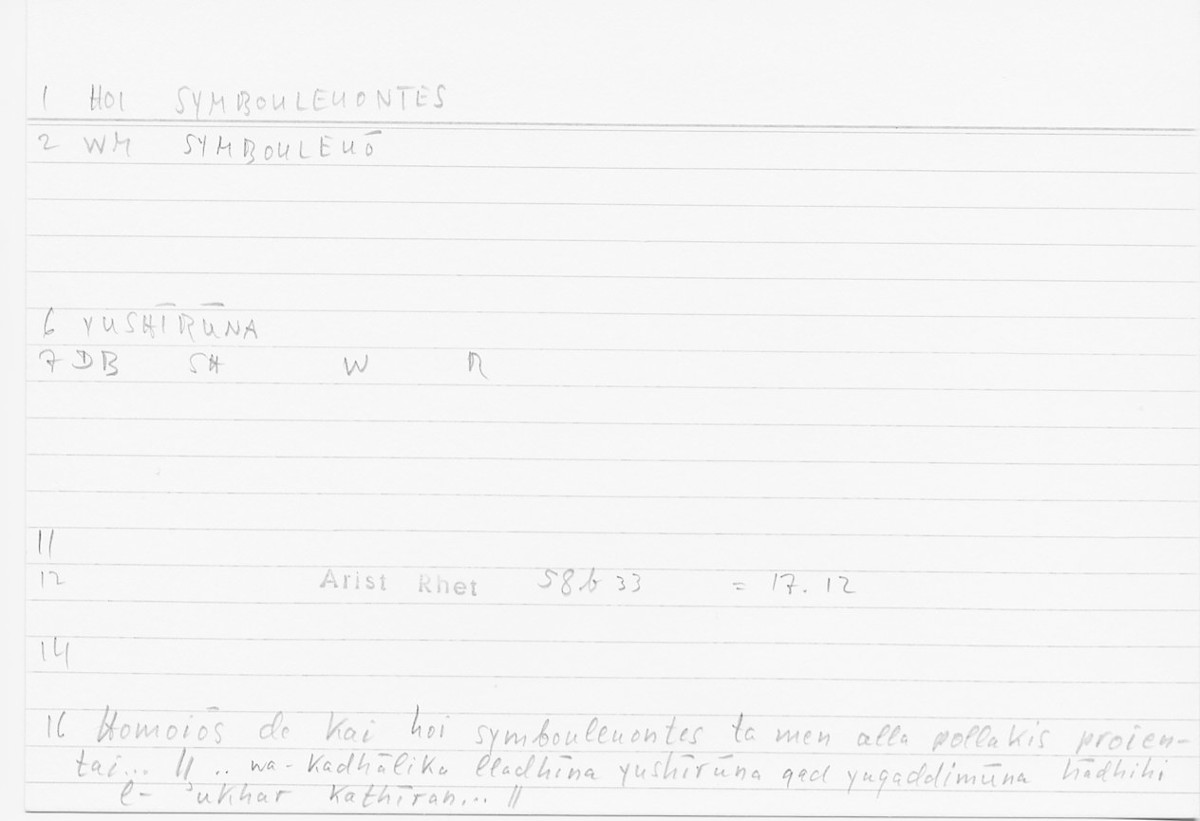 1 HOI SYMBOULEUONTES
2 WM SYMBOULEUŌ
6 YUSHĪRŪNA
7 DB SH W R
11
12 Arist Rhet 58b33 = 17.12
14
16 Homoiōs de kai hoi symbouleuontes ta men alla pollakis proien-
tai... || .. wa-kadhālika lladhīna yushīrūna qad yuqaddimūna hādhihi
l-ʾukhar kathīran... ||